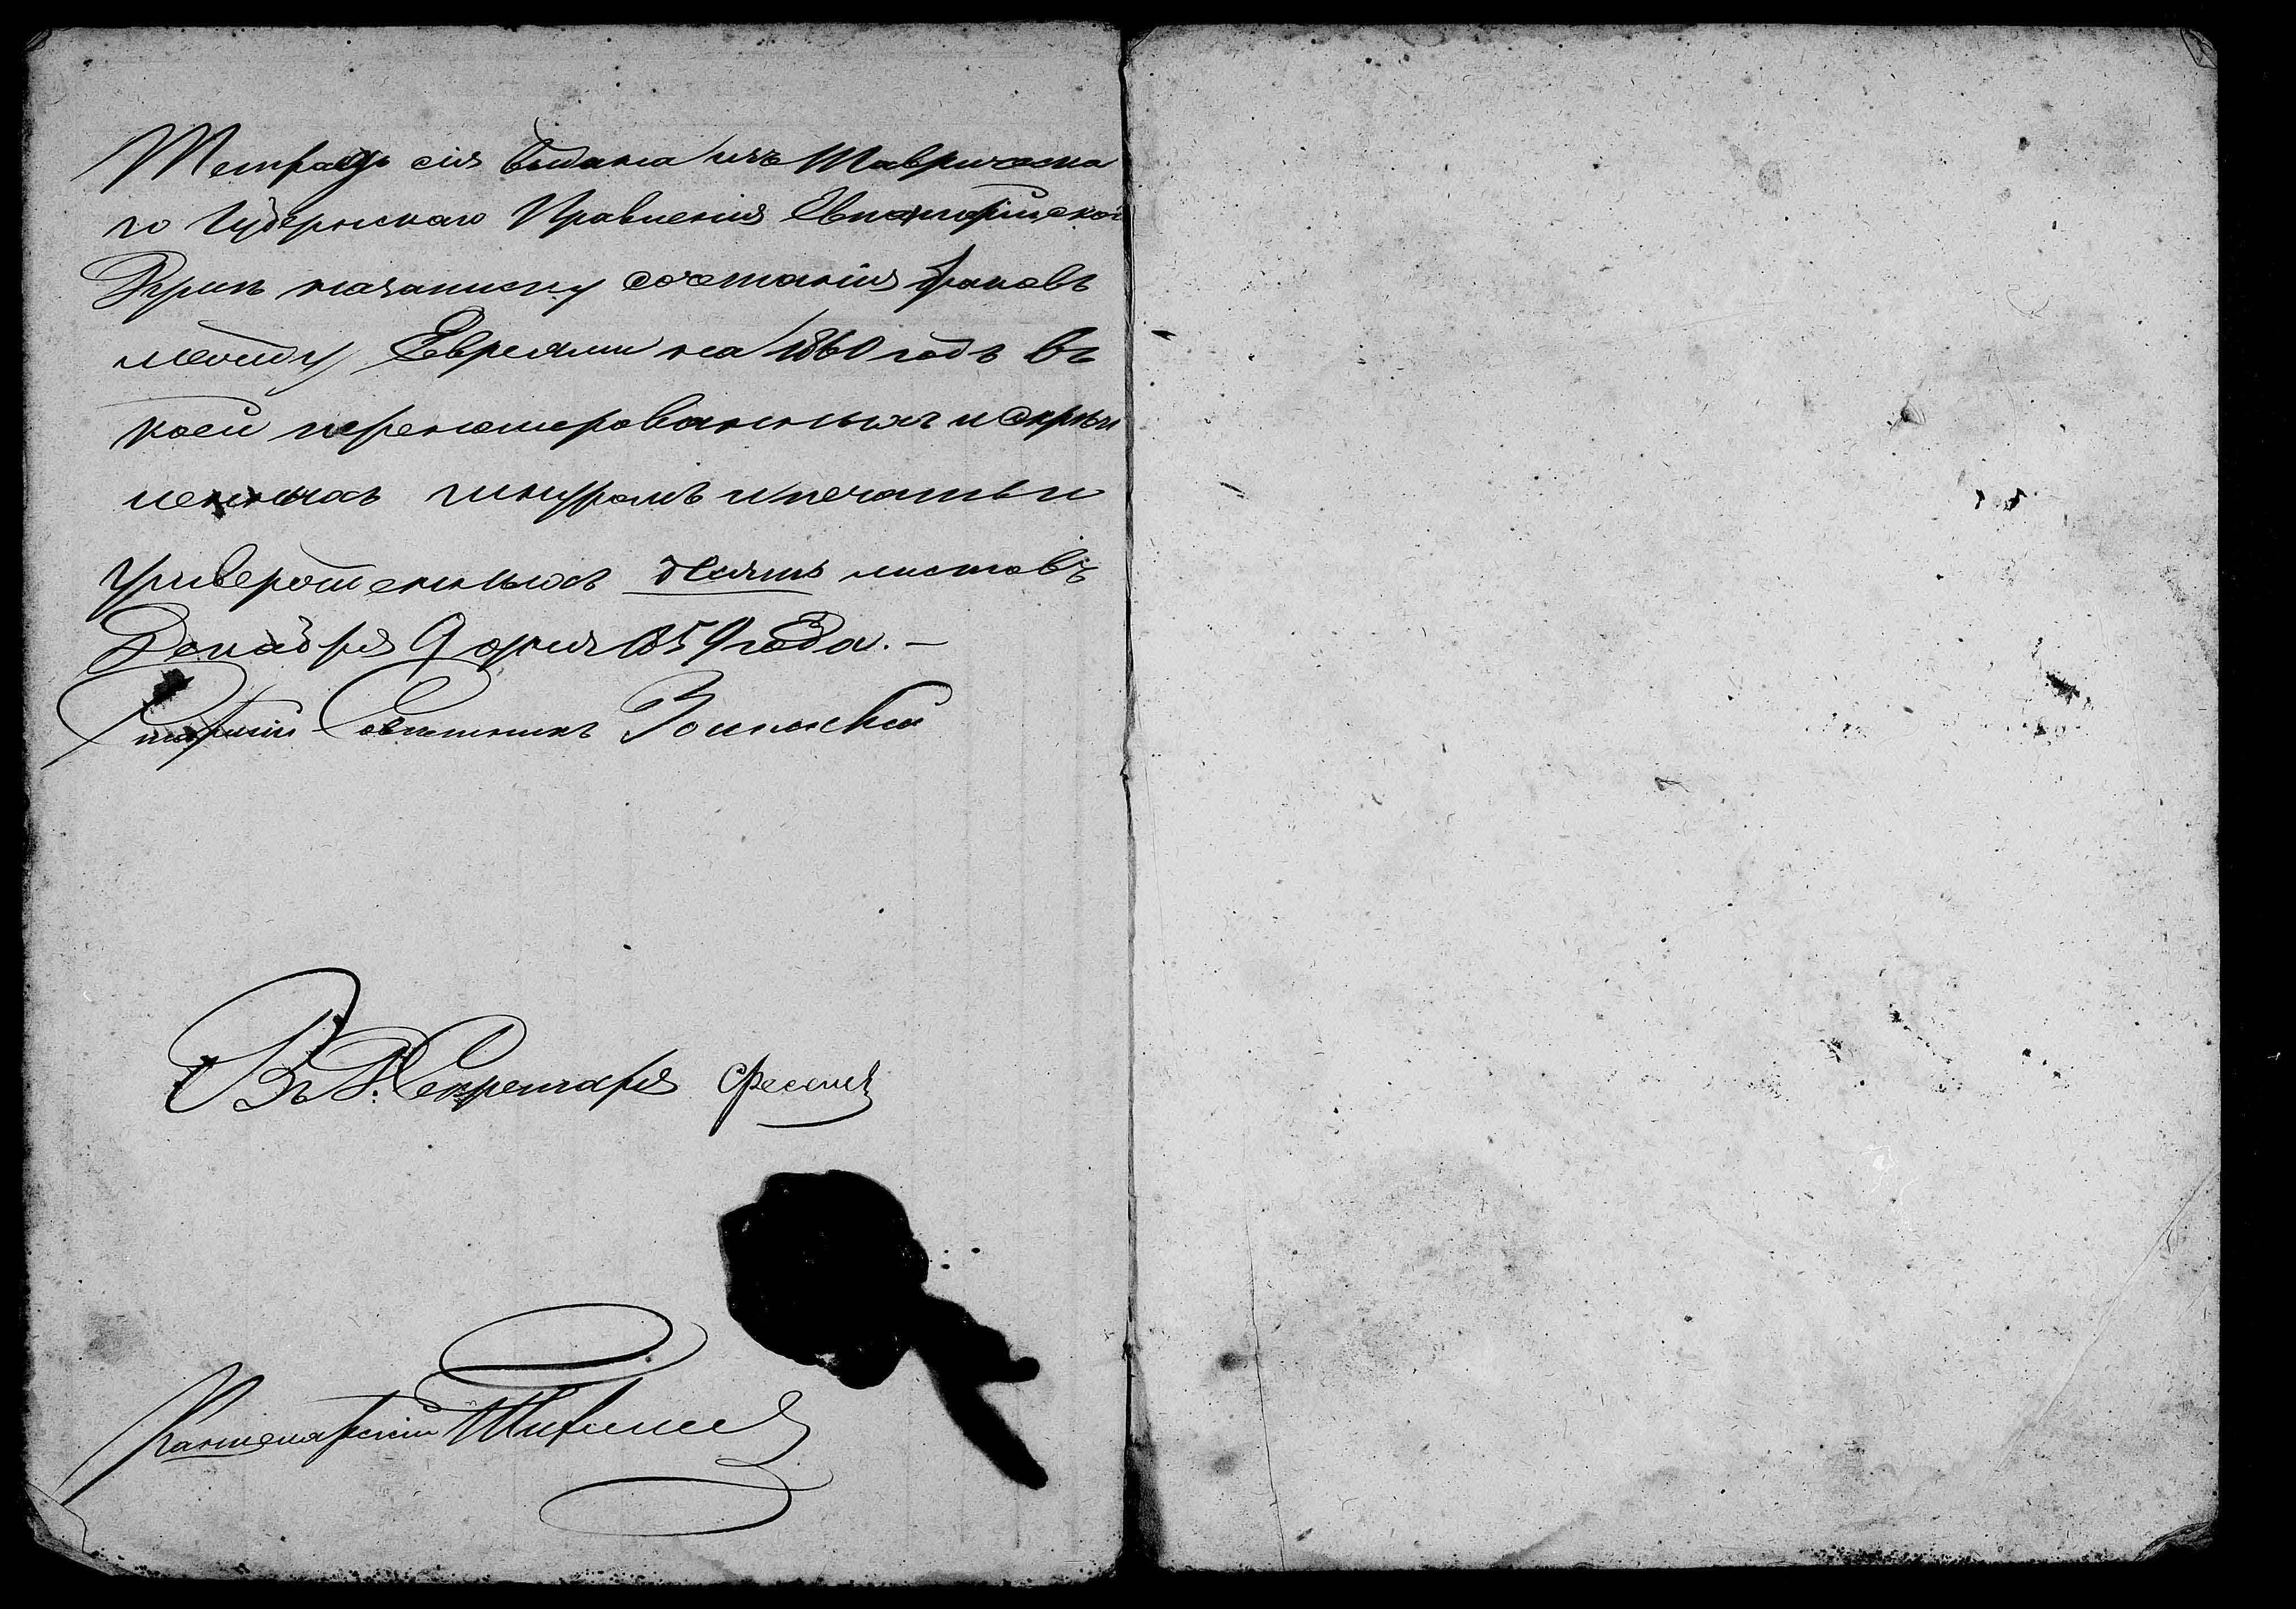 Тетрадь сія выдана изъ Таврическа
го Губернскаго Правленія Евпаторійской
Думѣ на записку сочетанія браковъ
между Евреями на 1860 годъ въ
коей перенумерованныхъ и скрѣп
ленныхъ шнуромъ и печатью
удостовѣренныхъ десять листовъ
Декабря 9 дня 1859 года. —
Старшій Совѣтникъ
Въ Д: Секретаря
Канцелярскій